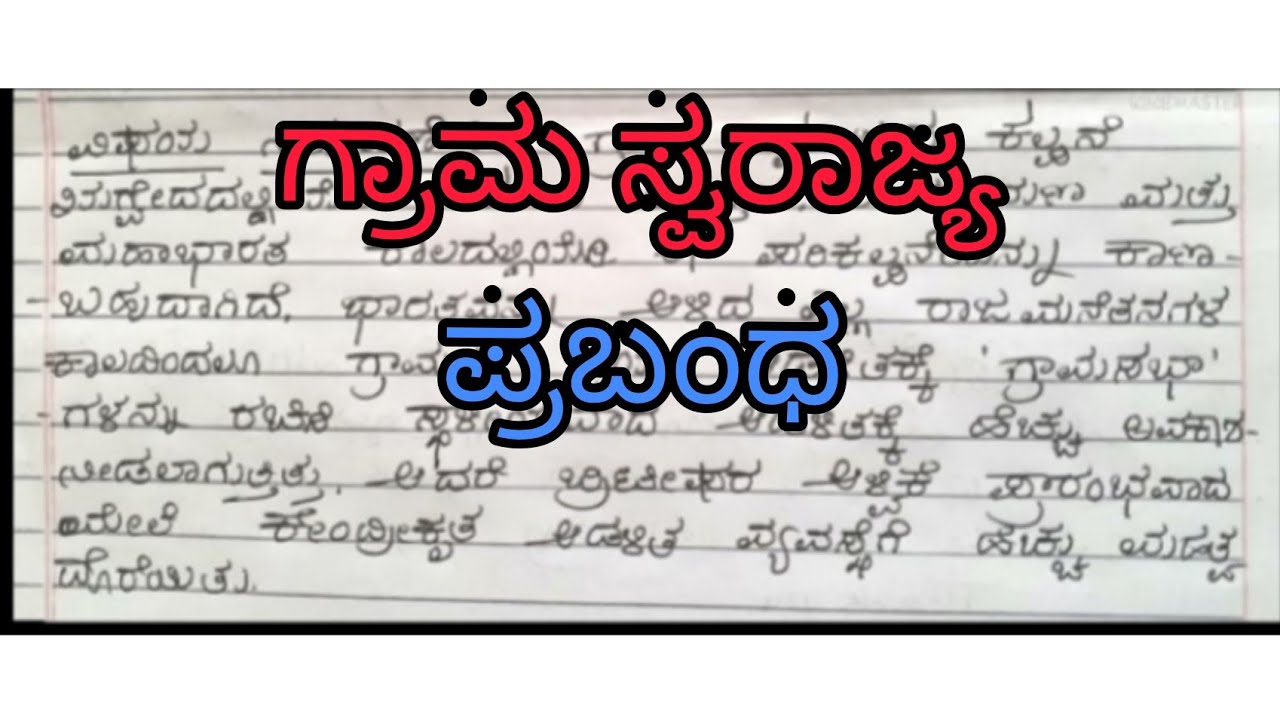 ಗ್ರಾಮ ಸ್ವರಾಜ್ಯ
ಪ್ರಬಂಧ
KINEMASTER
ವಿಷಯ ಕಲ್ಪನೆ
ಋಗ್ವೇದದಲ್ಲಿ ಮತ್ತು
ಮಹಾಭಾರತ ಕಾಲದಲ್ಲಿಯೇ ಪರಿಕಲ್ಪನೆಯನ್ನು ಕಾಣ-
-ಬಹುದಾಗಿದೆ. ಆಳಿದ ರಾಜಮನೆತನಗಳ
ಕಾಲದಿಂದಲೂ 'ಗ್ರಾಮಸಭಾ'
-ಗಳನ್ನು ರಚಿಸಿ ಆಡಳಿತಕ್ಕೆ ಹೆಚ್ಚು ಅವಕಾಶ-
ನೀಡಲಾಗುತ್ತಿತ್ತು. ಆದರೆ ಬ್ರಿಟೀಷರ ಆಳ್ವಿಕೆ ಪ್ರಾರಂಭವಾದ
ಮೇಲೆ ಕೇಂದ್ರೀಕೃತ ಆಡಳಿತ ವ್ಯವಸ್ಥೆಗೆ ಹೆಚ್ಚು ಮಹತ್ವ
ದೊರೆಯಿತು.